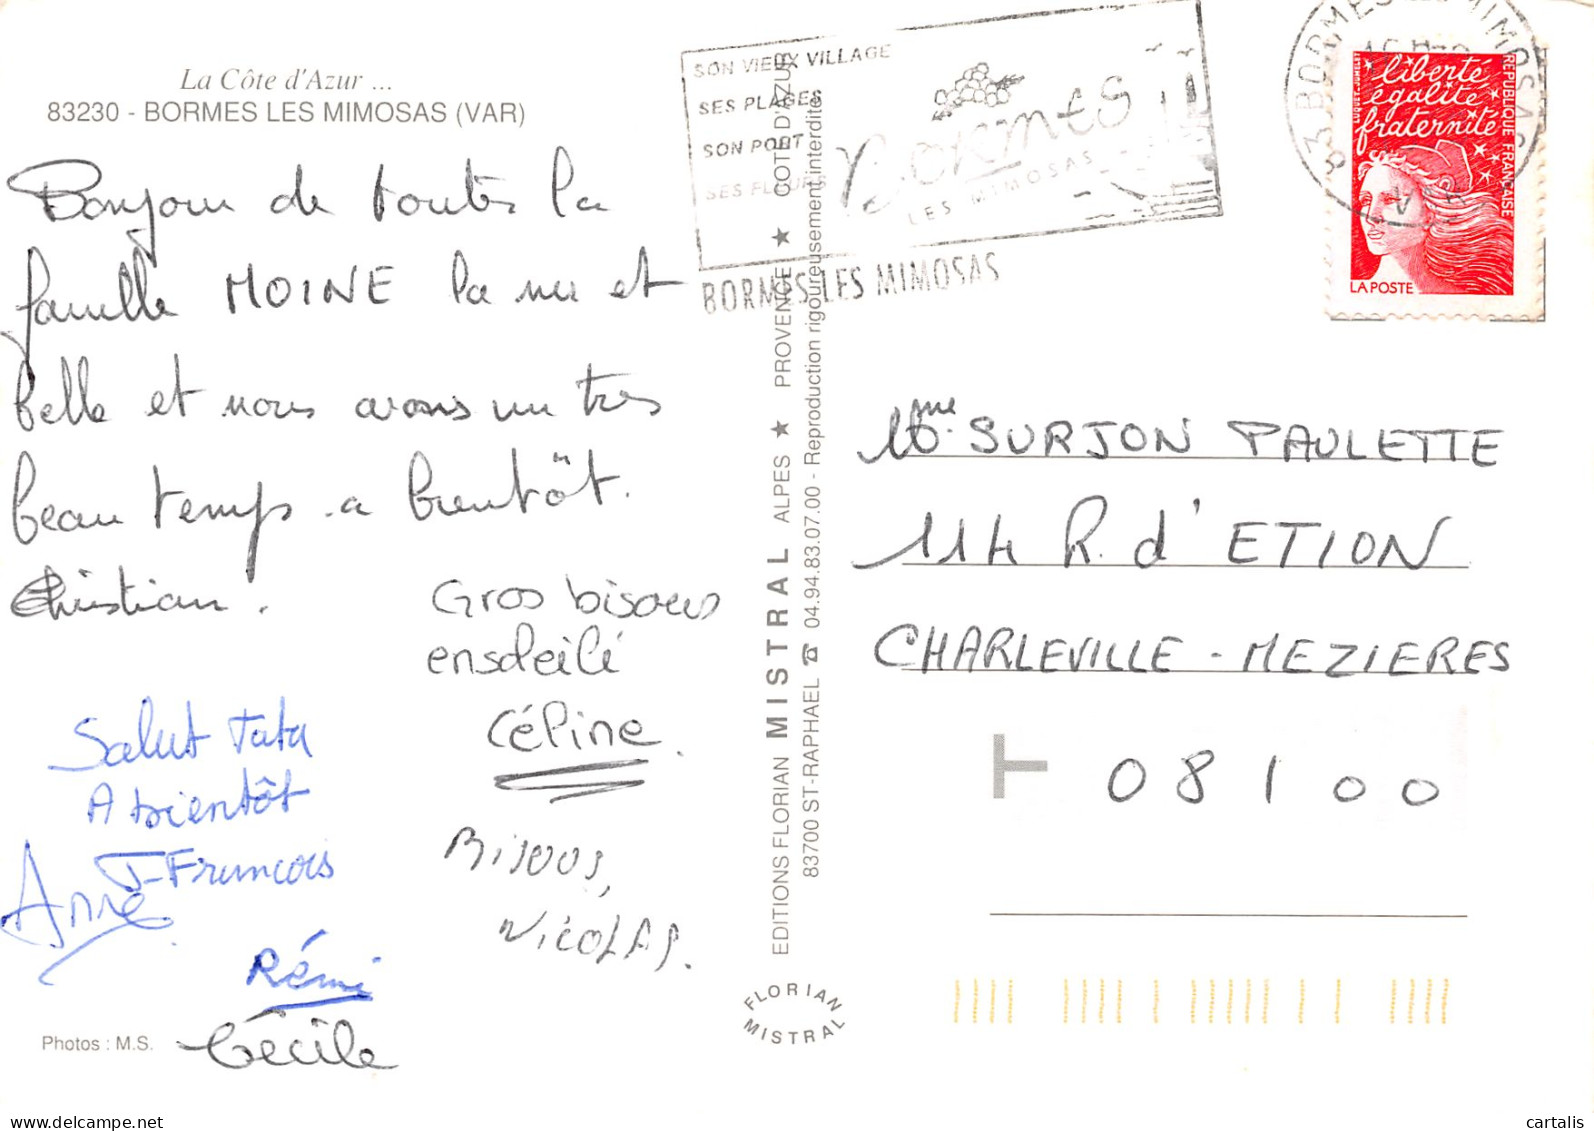 La Côte d'Azur ...
83230 - BORMES LES MIMOSAS (VAR)
Bonjour de toute la
famille MOINE la mer et
belle et nous avons un tres
beau temps a bientôt.
Christian.
Gros bisous
ensoleilé
Céline.
Salut Tata
A bientôt
J-Francois
Anne
Bisous,
Nicolas.
Rémi
Cécile
Photos : M.S.
EDITIONS FLORIAN MISTRAL ALPES ★ PROVENCE ★ COTE D'AZUR
83700 ST-RAPHAEL ☎ 04.94.83.07.00 - Reproduction rigoureusement interdite
FLORIAN
MISTRAL
SON VIEUX VILLAGE
SES PLAGES
SON PORT
SES FLEURS
BORMES
LES MIMOSAS
BORMES LES MIMOSAS
83 BORMES LES MIMOSAS
VAR
liberté
égalité
fraternité
RÉPUBLIQUE FRANÇAISE
LUQUET-JUMELET
LA POSTE
Mme SURJON PAULETTE
114 R. d'ETION
CHARLEVILLE - MEZIERES
08100
delcampe.net
cartescence